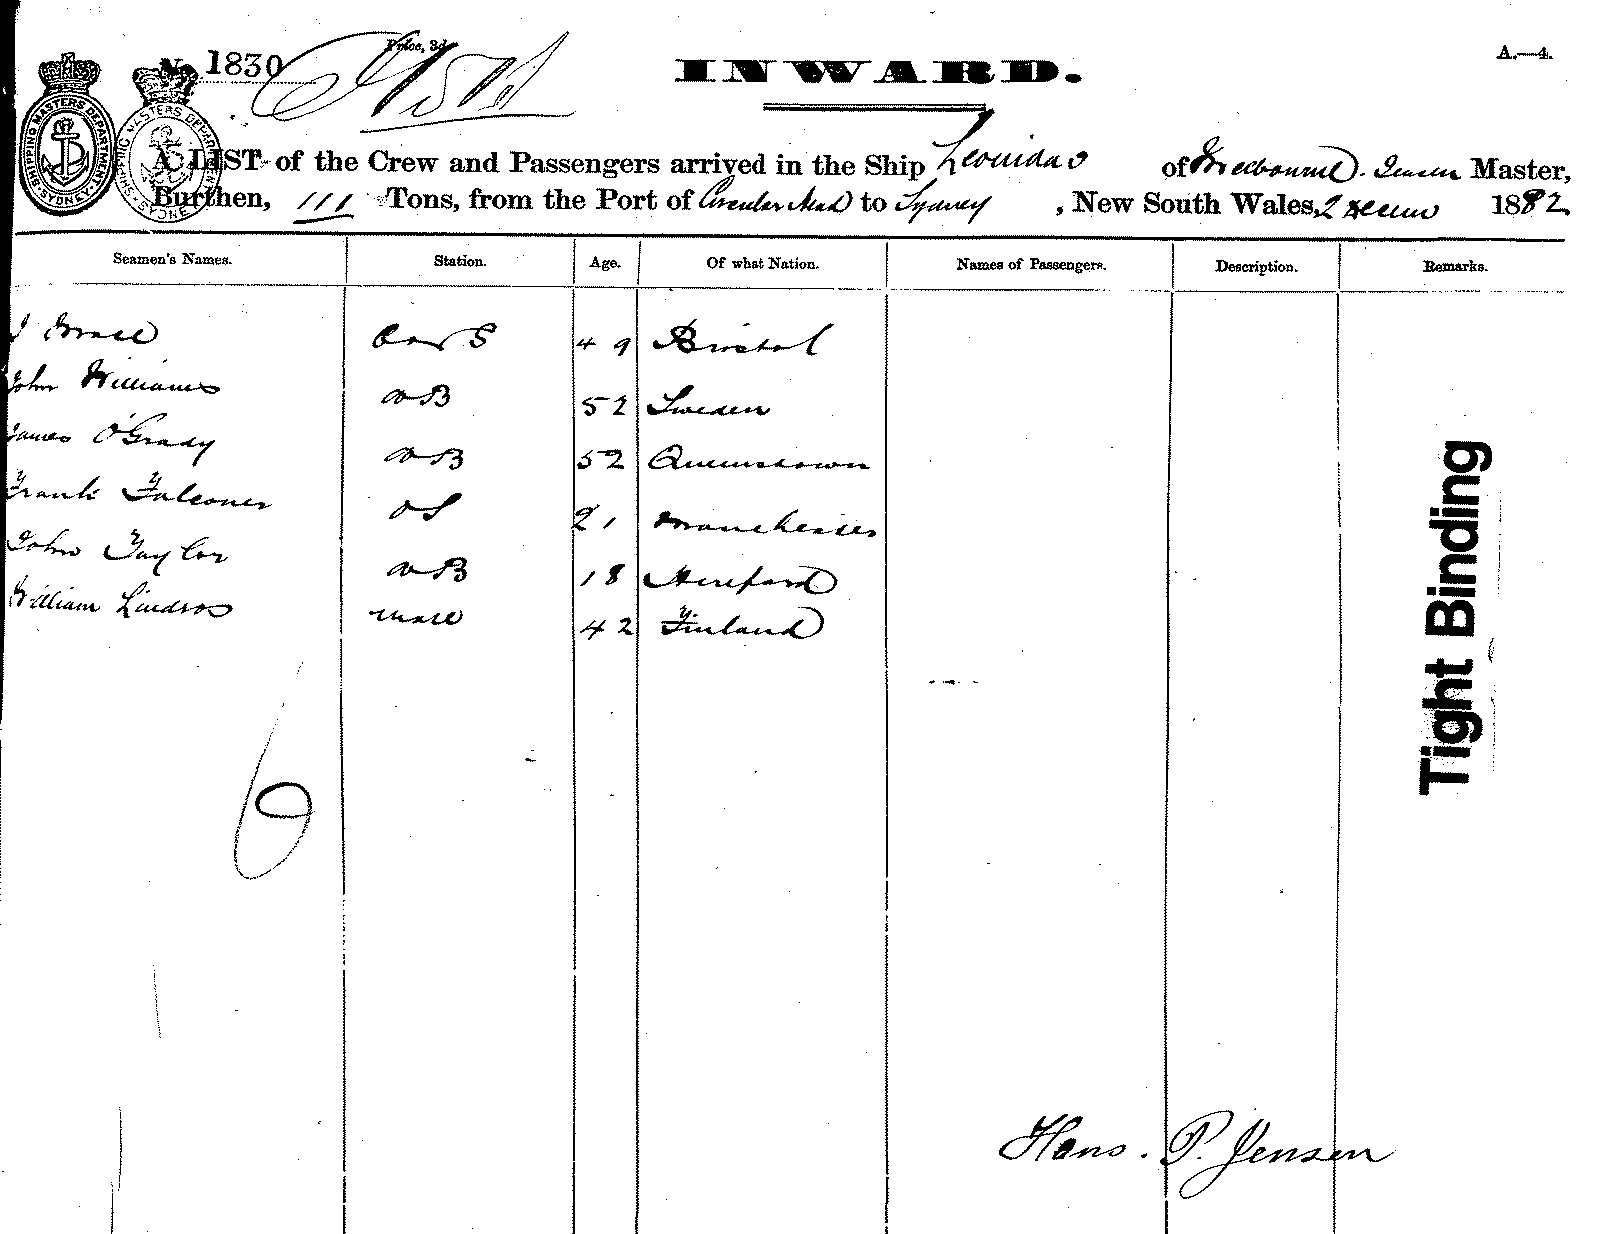 No 1830
Price, 3d.
INWARD.
A.—4.
SHIPPING MASTERS DEPARTMENT. SYDNEY.
A LIST of the Crew and Passengers arrived in the Ship Leonidas of Melbourne. Jensen Master,
Burthen, 111 Tons, from the Port of Circular Head to Sydney, New South Wales, 2 1882
Seamen's Names. Station. Age. Of what Nation. Names of Passengers. Description. Remarks.
49 Bristol
John Williams AB 52 Sweden
James O'Grady AB 52 Queenstown
Frank Falconer OS 21 Manchester
John Taylor AB 18 Hereford
William Lindros Mate 42 Finland
6
Hans. P. Jensen
Tight Binding